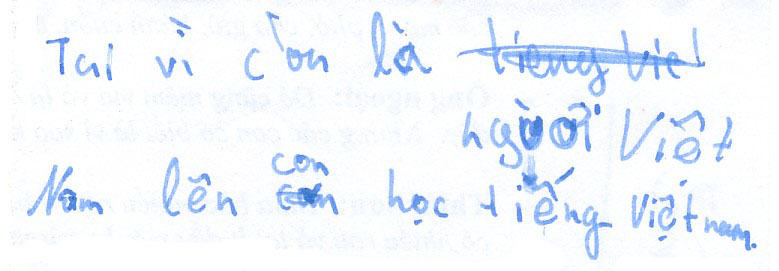 Tai vì còn là tieng Viet
người Việt
Nam lên con học tiếng Việt nam.